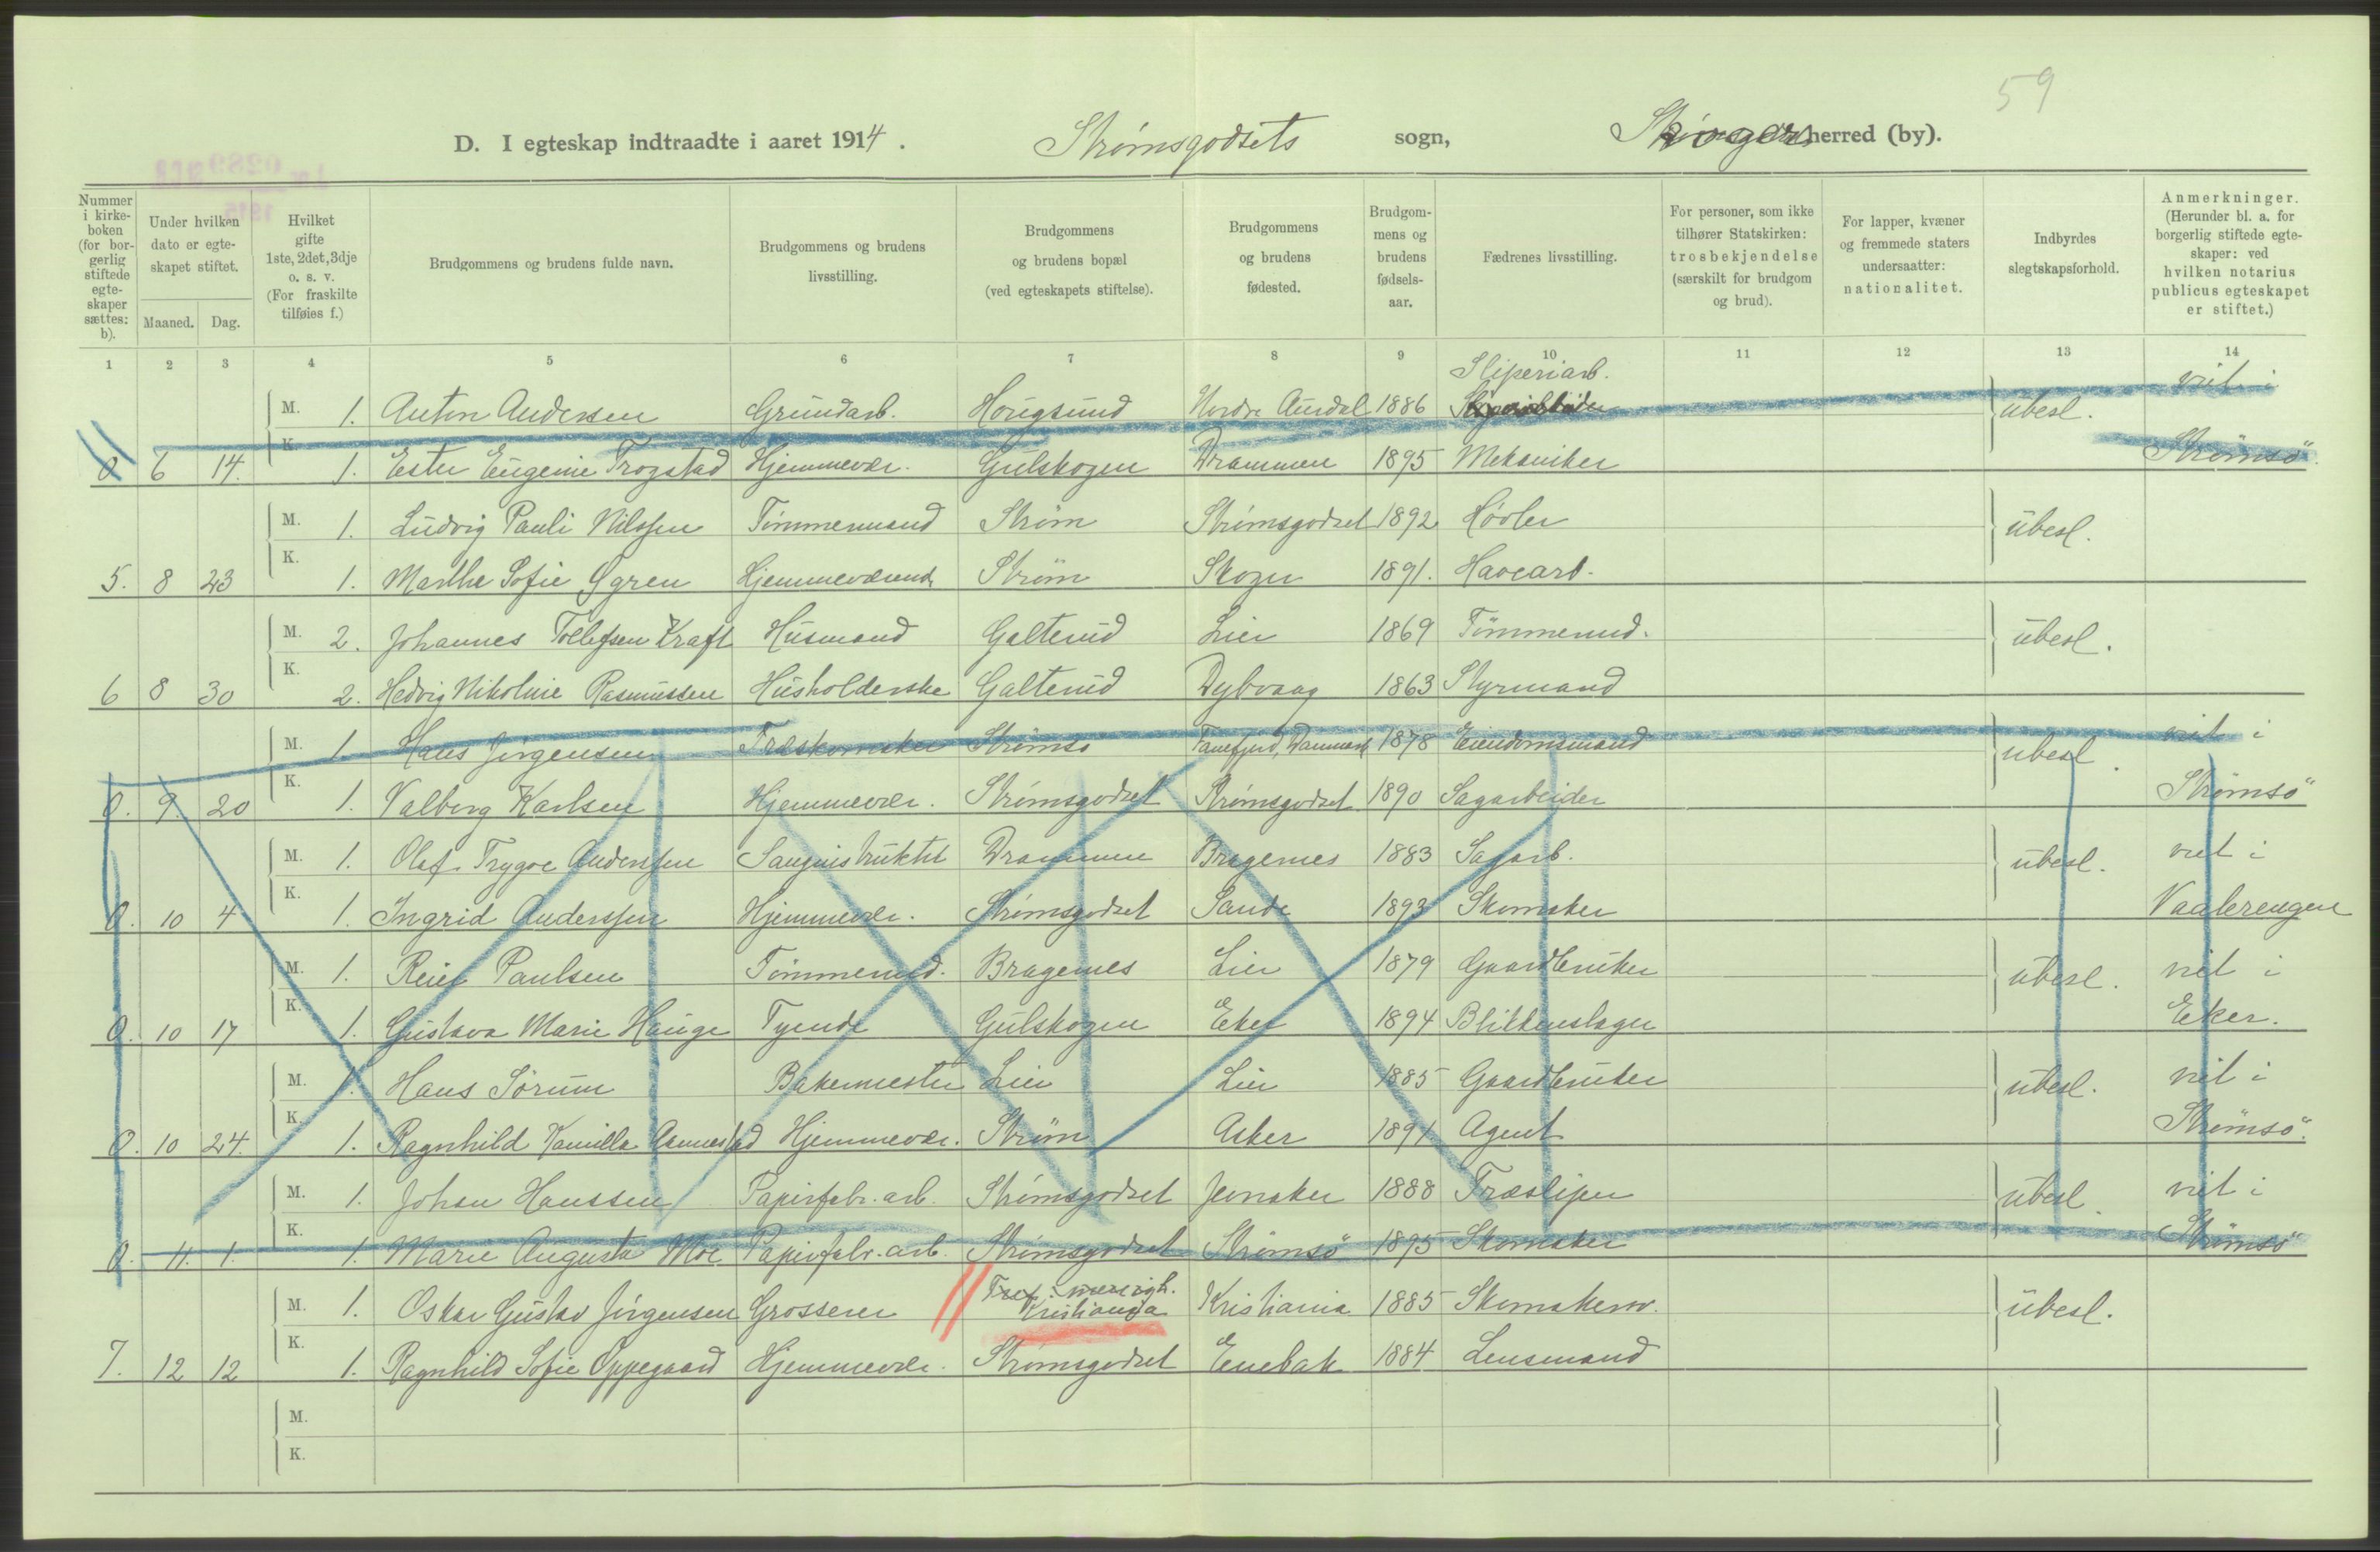 59
D. I egteskap indtraadte i aaret 1914. Strømsgodsets sogn, Skoger herred (by).
Nummer i kirke-boken (for bor-gerlig stiftede egte-skaper sættes: b).
Under hvilken dato er egte-skapet stiftet.
Maaned. Dag.
Hvilket gifte 1ste, 2det, 3dje o. s. v. (For fraskilte tilføies f.)
Brudgommens og brudens fulde navn.
Brudgommens og brudens livsstilling.
Brudgommens og brudens bopæl (ved egteskapets stiftelse).
Brudgommens og brudens fødested.
Brudgom-mens og brudens fødsels-aar.
Fædrenes livsstilling.
For personer, som ikke tilhører Statskirken: trosbekjendelse (særskilt for brudgom og brud).
For lapper, kvæner og fremmede staters undersaatter: nationalitet.
Indbyrdes slegtskapsforhold.
Anmerkninger. (Herunder bl. a. for borgerlig stiftede egte-skaper: ved hvilken notarius publicus egteskapet er stiftet.)
1 2 3 4 5 6 7 8 9 10 11 12 13 14
Sliperiarb.
M. 1. Anton Andersen Grundarb. Hougsund Nordre Aurdal 1886 ubesl. viet i
0 6 14. K. 1. Ester Eugenie Trogstad Hjemmevær. Gulskogen Drammen 1895 Mekaniker Strømsö
M. 1. Ludvig Pauli Nilssen Tømmermand Strøm Strømsgodset 1892 Høvler ubesl.
5. 8 23 K. 1. Marthe Sofie Ogren Hjemmeværend. Strøm Skoger 1891. Havearb.
M. 2. Johannes Tollefsen Kraft Husmand Galterud Lier 1869 Tømmermd. ubesl.
6 8 30 K. 2. Hedvig Nikoline Rasmussen Husholderske Galterud Dybvaag 1863 Styrmand
M. 1. Hans Jørgensen Træskomaker Strømsø Danmark 1878 Eiendomsmand ubesl. viet i
0. 9. 20 K. 1. Valborg Karlsen Hjemmevær. Strømsgodset Strømsgodset 1890 Sagarbeider Strømsö
M. 1. Olaf Trygve Anderssen Sanginstruktør Drammen Bragernes 1883 Sagarb. ubesl. viet i
0. 10 4 K. 1. Ingrid Anderssen Hjemmevær. Strømsgodset Sande 1893 Skomaker Vaalerengen
M. 1. Reier Paulsen Tømmermd. Bragernes Lier 1879 Gaardbruker ubesl. viet i
0. 10 17 K. 1. Gustava Marie Hauge Tyende Gulskogen Eker 1894 Blikkenslager Eker.
M. 1. Hans Sørum Bakermester Lier Lier 1885 Gaardbruker ubesl. viet i
0. 10 24. K. 1. Ragnhild Kamilla Aannestad Hjemmevær. Strøm Asker 1891 Agent Strømsö.
M. 1. Johan Hanssen Papirfabr.arb. Strømsgodset Jevnaker 1888 Træsliper ubesl. viet i
0. 11. 1. K. 1. Marie Augusta Moe Papirfabr.arb. Strømsgodset Strømsö 1895 Skomaker Strømsö
M. 1. Oskar Gustav Jørgensen Grosserer Kristiania Kristiania 1885 Skomakersv. ubesl.
7. 12 12 K. 1. Ragnhild Sofie Oppegaard Hjemmevær. Strømsgodset Enebak 1884 Lensmand
M.
K.